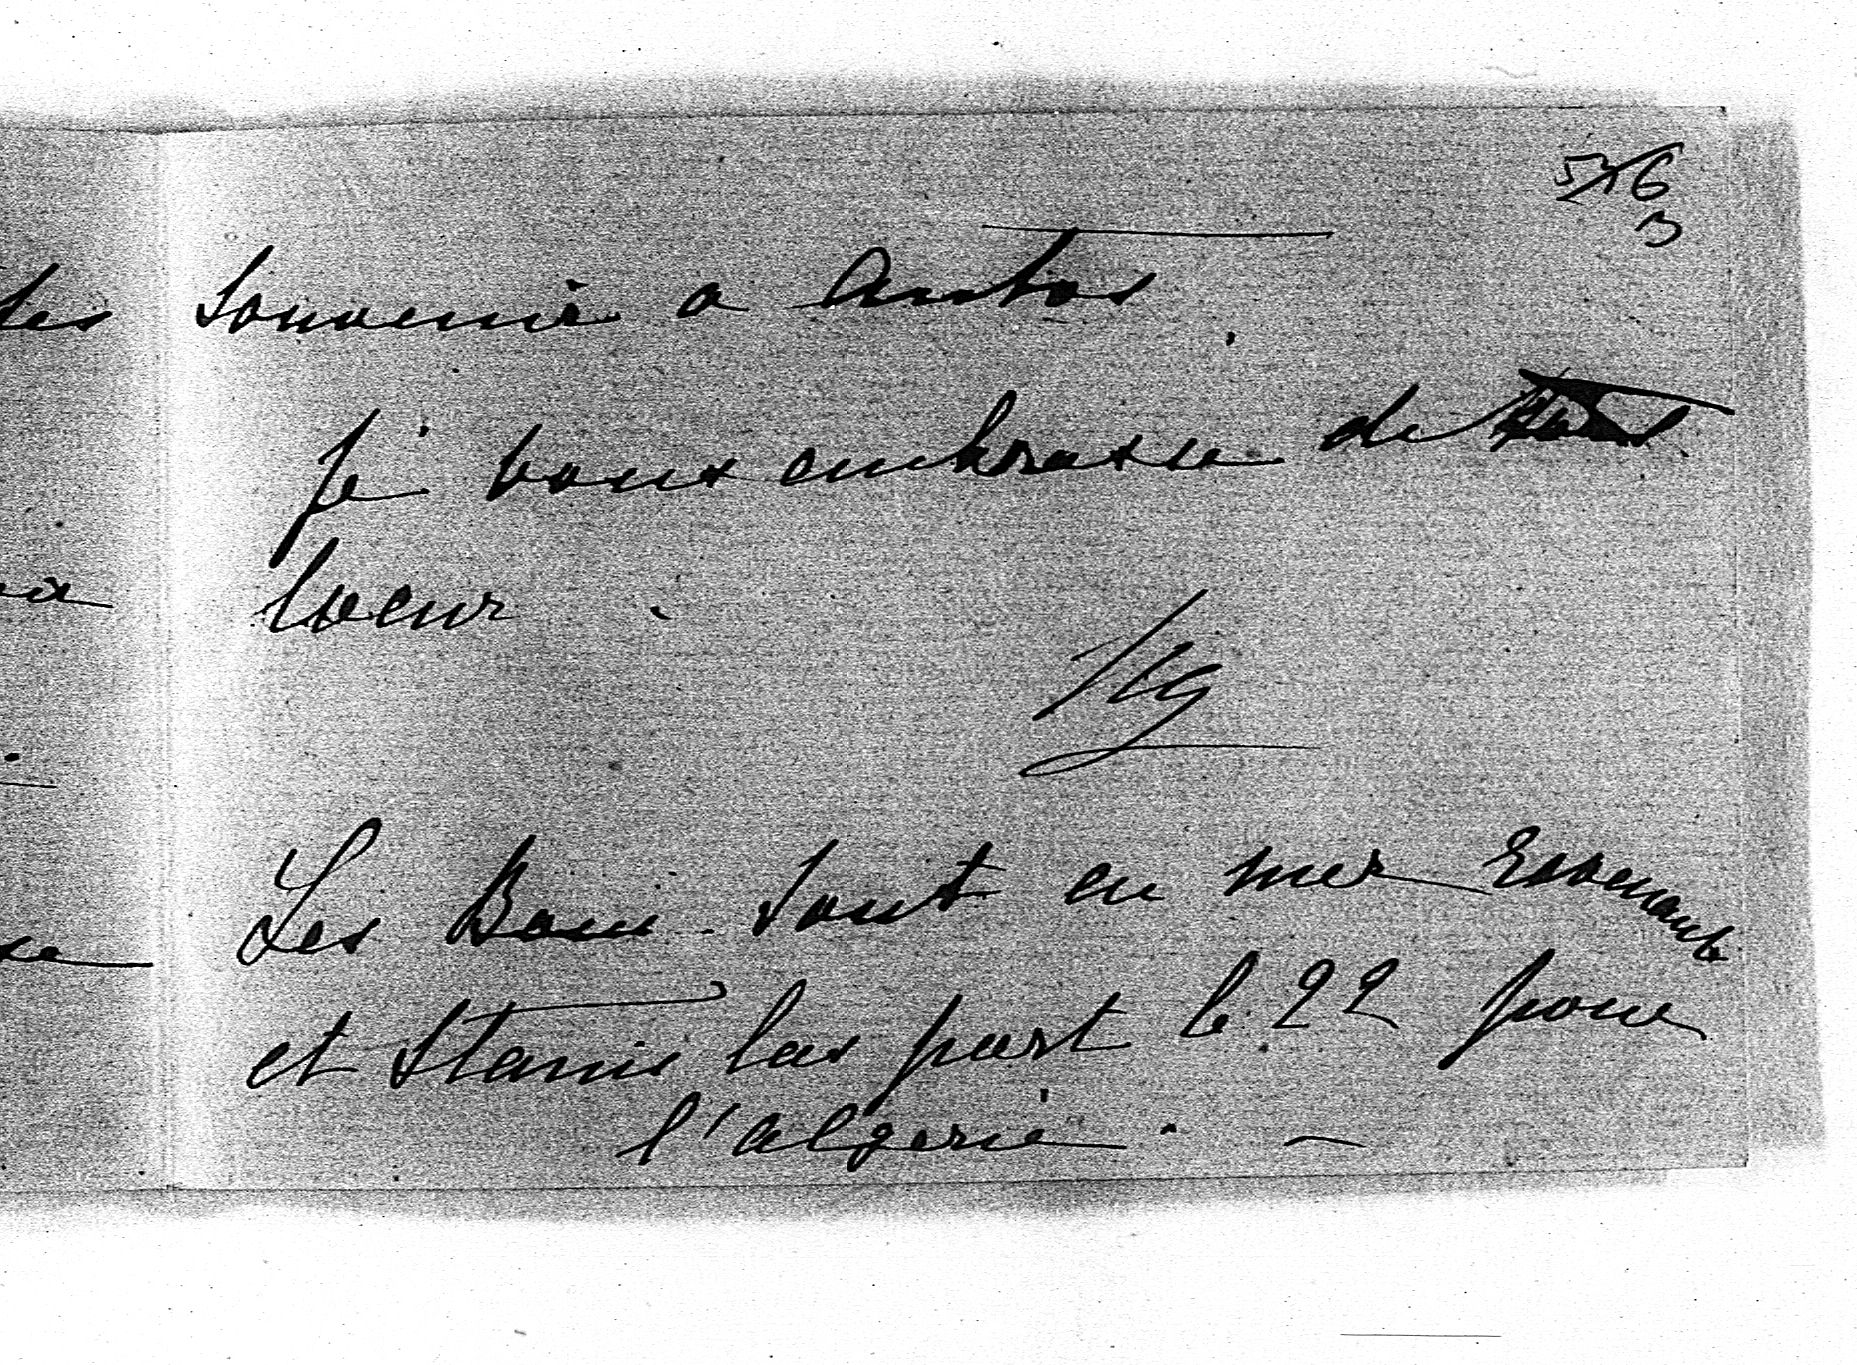 576
3
Souvenir a Antos.
Je vous embrasse de tout
Coeur.
Les Bou sont en mer revenant
et Stanislas part le 22 pour
l'algerie. —